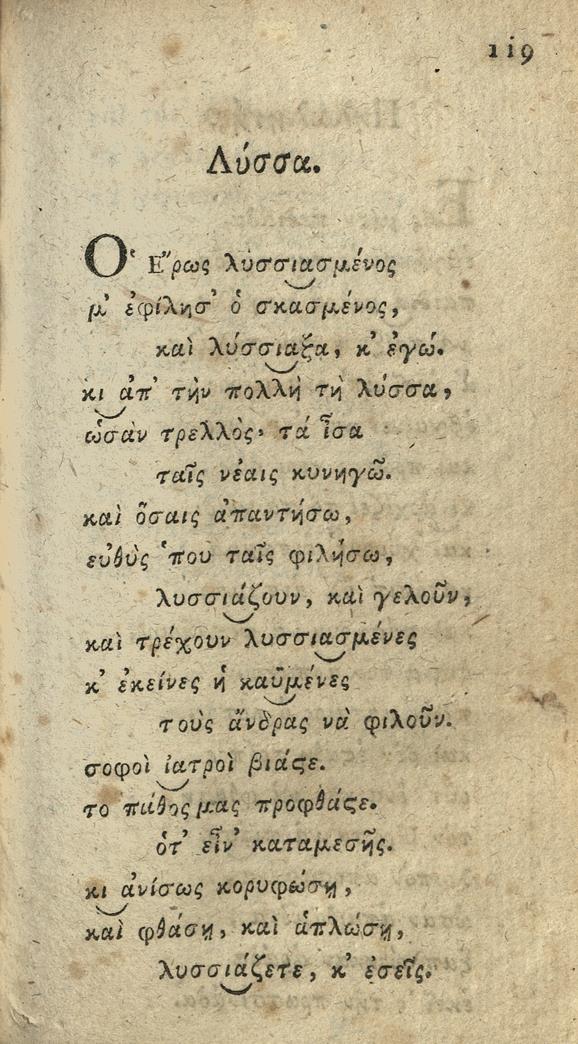 119
Λύσσα.
Ο῾ Ε῎ρως λυσσιασμένος
μ' ἐφίλησ' ὁ σκασμένος,
καὶ λύσσιαξα, κ' ἐγώ.
κι ἀπ' τὴν πολλὴ τὴ λύσσα,
ὡσὰν τρελλὸς· τά ἶσα
ταῖς νέαις κυνηγῶ.
καὶ ὅσαις ἀπαντήσω,
εὐθὺς ῾που ταῖς φιλήσω,
λυσσιάζουν, καὶ γελοῦν,
καὶ τρέχουν λυσσιασμένες
κ' ἐκείνες ἡ καϋμένες
τοὺς ἄνδρας νὰ φιλοῦν.
σοφοὶ ἰατροὶ βιάϛε.
το πάθος μας προφθάϛε.
ὁτ' εἶν' καταμεσῆς.
κι ἀνίσως κορυφώσῃ,
καὶ φθάσῃ, καὶ ἁπλώσῃ,
λυσσιάζετε, κ' ἐσεῖς.